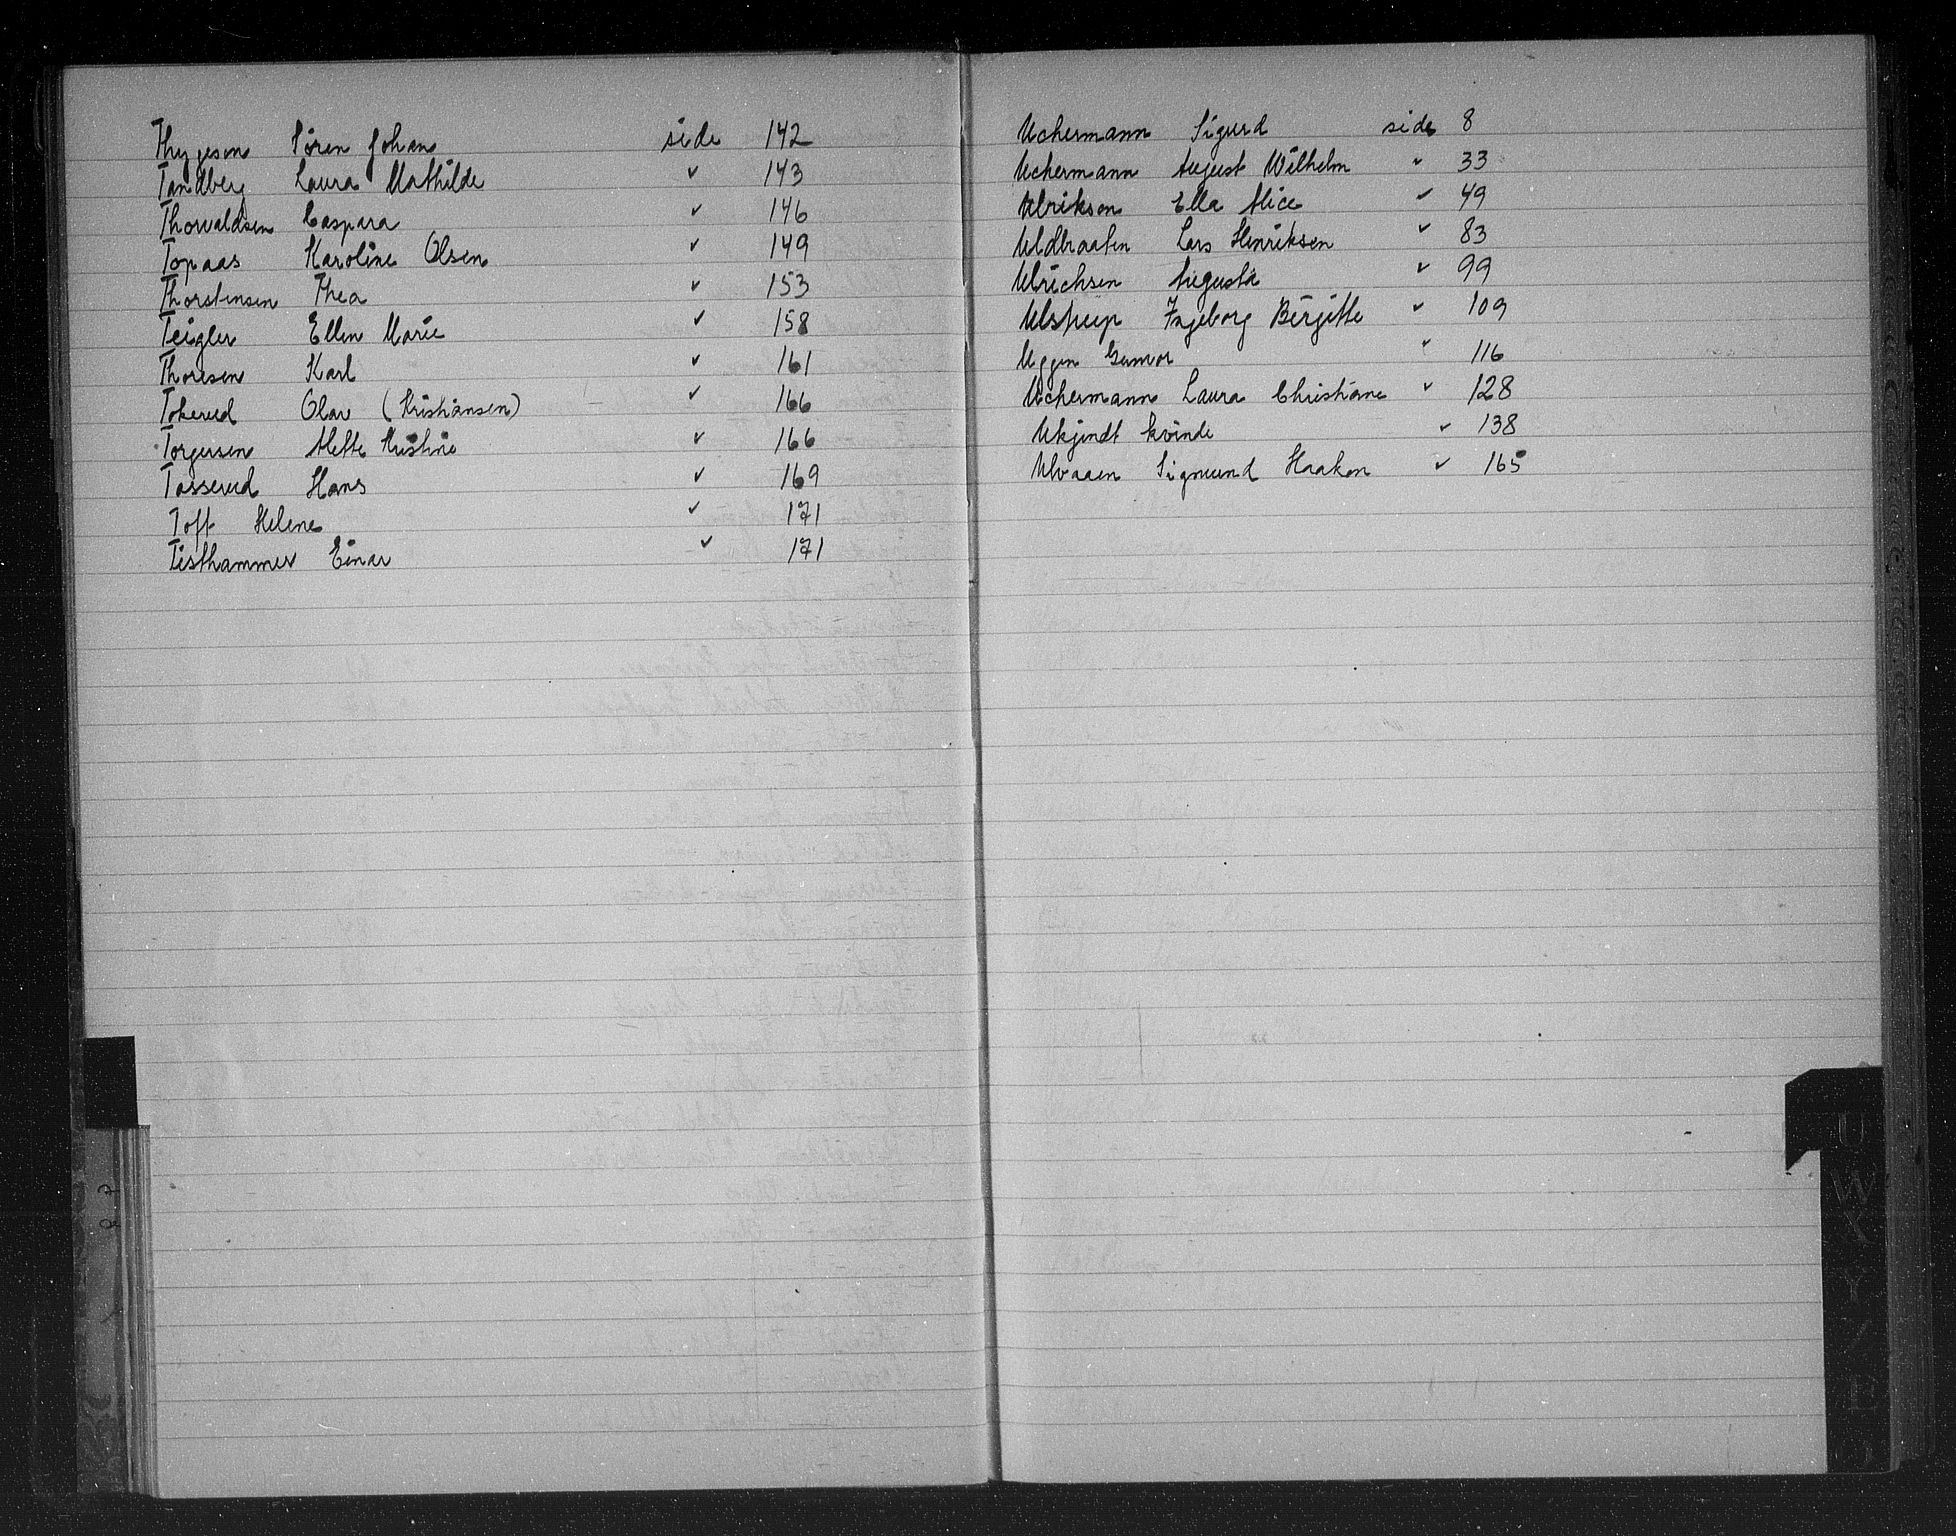 Thygesen Søren Johan side 142
Tandberg Laura Mathilde " 143
Thorvaldsen Caspara " 146
Topaas Karoline Olsen " 149
Thorstensen Thea " 153
Teigler Ellen Marie " 158
Thoresen Karl " 161
Tokerud Olav (Kristiansen) " 166
Torgersen Mette Kristine " 166
Tasserud Hans " 169
Toft Helene " 171
Tisthammer Einar " 171
Uchermann Sigurd side 8
Uchermann August Wilhelm " 33
Ulrikson Ella Alice " 49
Uldbraaten Lars Henriksen " 83
Ulrichsen Augusta " 99
Ulstrup Ingeborg Bergitte " 109
Uggen Gunvor " 116
Uchermann Laura Christiane " 128
Ukjendt kvinde " 138
Ulvaaen Sigmund Haakon " 165
U
W
X
Y
Z
Æ